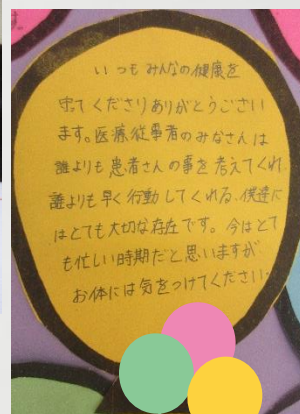 いつもみんなの健康を
守てくださりありがとうござい
ます。医療従事者のみなさんは
誰よりも患者さんの事を考えてくれ
誰よりも早く行動してくれる、僕達に
はとても大切な存在です。今はとて
も忙しい時期だと思いますが
お体には気をつけてください。